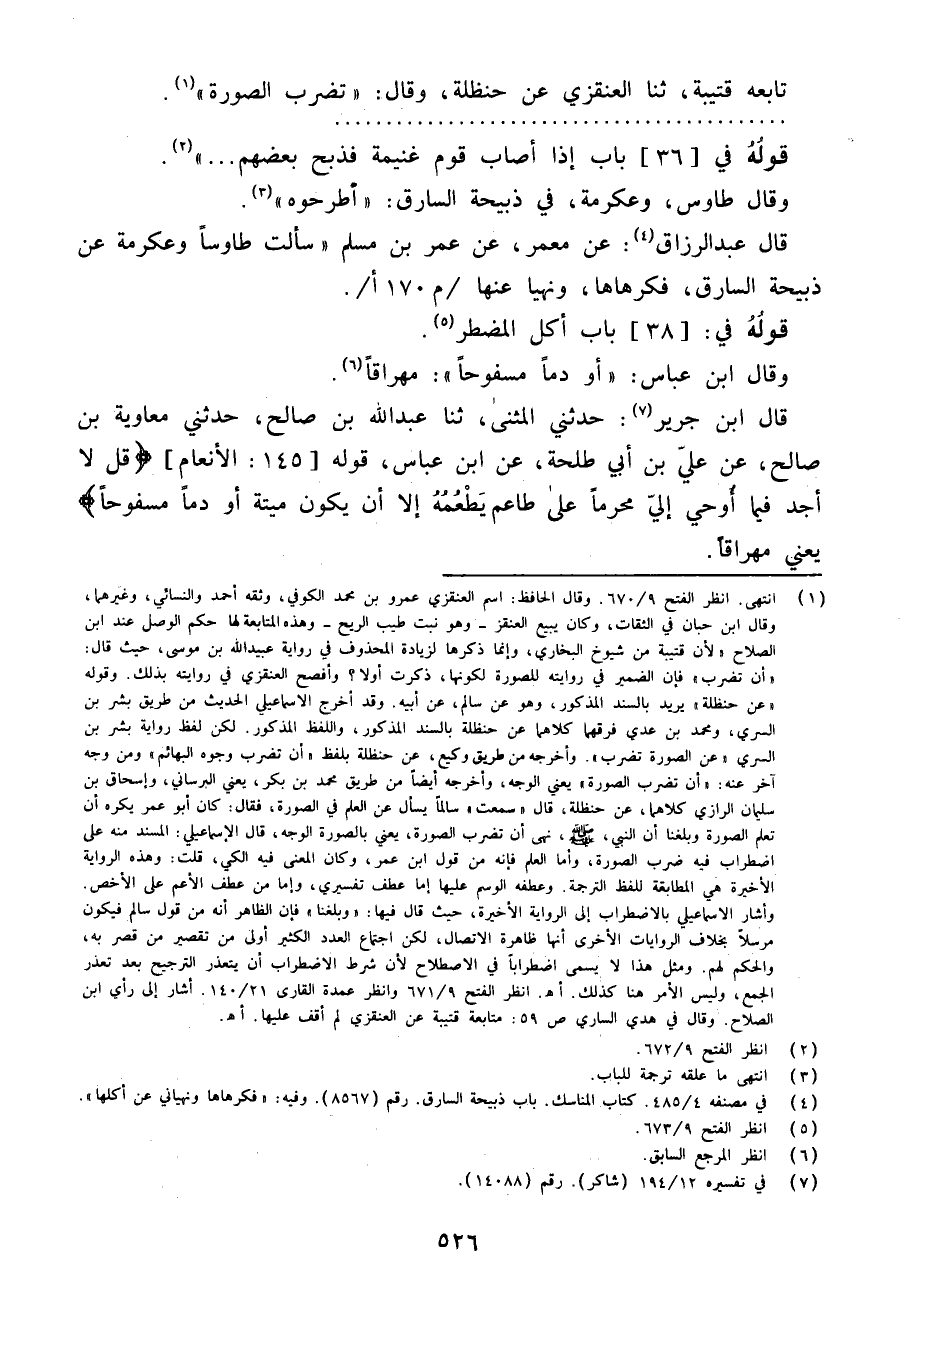 تابعه قتيبة، ثنا العنقزي عن حنظلة، وقال: «تضرب الصورة»(١).
. . . . . . . . . . . . . . . . . . . . . . . . . . . . . . . . . . . . . . . . . . . .
قولُهُ في [٣٦] باب إذا أصاب قوم غنيمة فذبح بعضهم...»(٢).
وقال طاوس، وعكرمة، في ذبيحة السارق: «أطرحوه»(٣).
قال عبدالرزاق(٤): عن معمر، عن عمر بن مسلم «سألت طاوساً وعكرمة عن
ذبيحة السارق، فكرهاها، ونهيا عنها /م ١٧٠ أ/.
قولُهُ في: [٣٨] باب أكل المضطر(٥).
وقال ابن عباس: «أو دماً مسفوحاً»: مهراقاً(٦).
قال ابن جرير(٧): حدثني المثنىٰ، ثنا عبدالله بن صالح، حدثني معاوية بن
صالح، عن عليّ بن أبي طلحة، عن ابن عباس، قوله [١٤٥: الأنعام] ﴿قل لا
أجد فيما أُوحي إليّ محرماً علىٰ طاعم يَطْعُمُهُ إلا أن يكون ميتة أو دماً مسفوحاً﴾
يعني مهراقاً.
(١) انتهى. انظر الفتح ٦٧٠/٩. وقال الحافظ: اسم العنقزي عمرو بن محمد الكوفي، وثقه أحمد والنسائي، وغيرهما،
وقال ابن حبان في الثقات، وكان يبيع العنقز ـ وهو نبت طيب الريح ـ وهذه المتابعة لها حكم الوصل عند ابن
الصلاح «لأن قتيبة من شيوخ البخاري، وإنما ذكرها لزيادة المحذوف في رواية عبيدالله بن موسى، حيث قال:
«أن تضرب» فإن الضمير في روايته للصورة لكونها، ذكرت أولا؟ وأفصح العنقزي في روايته بذلك. وقوله
«عن حنظلة» يريد بالسند المذكور، وهو عن سالم، عن أبيه. وقد أخرج الاسماعيلي الحديث من طريق بشر بن
السري، ومحمد بن عدي فرقهما كلاهما عن حنظلة بالسند المذكور، واللفظ المذكور. لكن لفظ رواية بشر بن
السري «عن الصورة تضرب». وأخرجه من طريق وكيع، عن حنظلة بلفظ «أن تضرب وجوه البهائم» ومن وجه
آخر عنه: «أن تضرب الصورة» يعني الوجه، وأخرجه أيضاً من طريق محمد بن بكر، يعني البرساني، وإسحاق بن
سليمان الرازي كلاهما، عن حنظلة، قال «سمعت» سالماً يسأل عن العلم في الصورة، فقال: كان أبو عمر يكره أن
تعلم الصورة وبلغنا أن النبي، ﷺ، نهى أن تضرب الصورة، يعني بالصورة الوجه، قال الإسماعيلي: المسند منه على
اضطراب فيه ضرب الصورة، وأما العلم فإنه من قول ابن عمر، وكان المعنى فيه الكي، قلت: وهذه الرواية
الأخيرة هي المطابقة للفظ الترجمة. وعطفه الوسم عليها إما عطف تفسيري، وإما من عطف الأعم على الأخص.
وأشار الاسماعيلي بالاضطراب إلى الرواية الأخيرة، حيث قال فيها: «وبلغنا» فإن الظاهر أنه من قول سالم فيكون
مرسلاً بخلاف الروايات الأخرى أنها ظاهرة الاتصال، لكن اجتماع العدد الكثير أولى من تقصير من قصر به،
والحكم لهم. ومثل هذا لا يسمى اضطراباً في الاصطلاح لأن شرط الاضطراب أن يتعذر الترجيح بعد تعذر
الجمع، وليس الأمر هنا كذلك. أ هـ. انظر الفتح ٦٧١/٩ وانظر عمدة القارى ١٤٠/٢١. أشار إلى رأي ابن
الصلاح. وقال في هدي الساري ص ٥٩: متابعة قتيبة عن العنقزي لم أقف عليها. أ هـ.
(٢) انظر الفتح ٦٧٢/٩.
(٣) انتهى ما علقه ترجمة للباب.
(٤) في مصنفه ٤٨٥/٤. كتاب المناسك. باب ذبيحة السارق. رقم (٨٥٦٧). وفيه: «فكرهاها ونهياني عن أكلها».
(٥) انظر الفتح ٦٧٣/٩.
(٦) انظر المرجع السابق.
(٧) في تفسيره ١٩٤/١٢ (شاكر). رقم (١٤٠٨٨).
٥٢٦